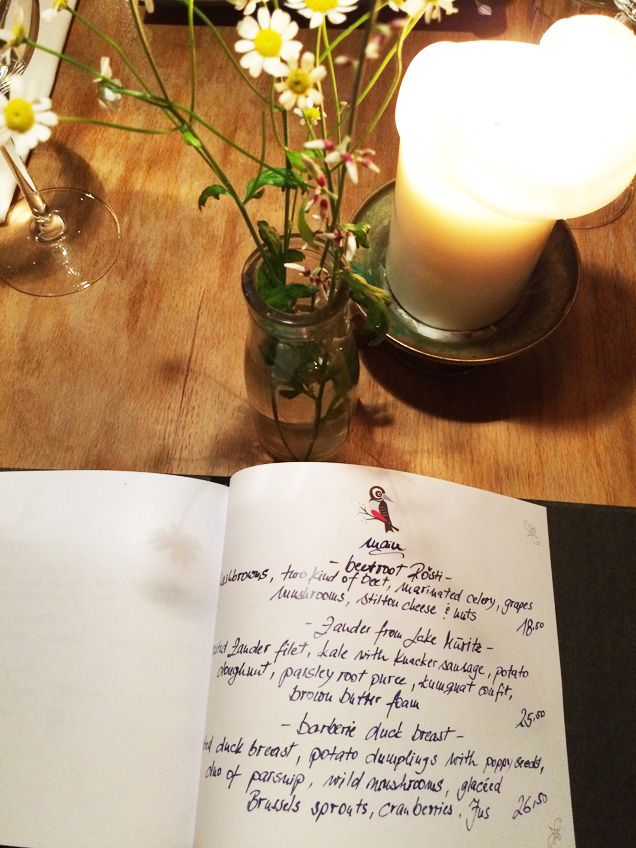 main
- beetroot Rösti -
hashbrowns, two kind of beet, marinated celery, grapes
mushrooms, stilton cheese & nuts
18,50
- Zander from Lake Müritz -
Zander filet, kale with Knacker sausage, potato
doughnut, parsley root puree, kumquat confit,
brown butter foam
25,50
- barberie duck breast -
duck breast, potato dumplings with poppy seeds,
duo of parsnip, wild mushrooms, glacéed
Brussels sprouts, cranberries, Jus 26,50